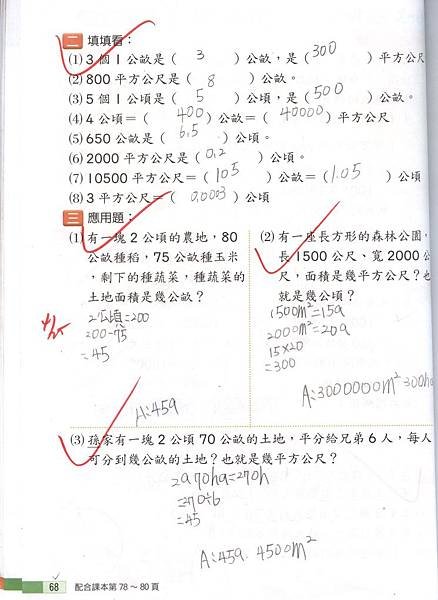 二 填填看：
(1) 3 個 1 公畝是（ 3 ）公畝，是（ 300 ）平方公尺
(2) 800 平方公尺是（ 8 ）公畝。
(3) 5 個 1 公頃是（ 5 ）公頃，是（ 500 ）公畝。
(4) 4 公頃＝（ 400 ）公畝＝（ 40000 ）平方公尺
(5) 650 公畝是（ 6.5 ）公頃。
(6) 2000 平方公尺是（ 0.2 ）公頃。
(7) 10500 平方公尺＝（ 105 ）公畝＝（ 1.05 ）公頃
(8) 3 平方公尺＝（ 0.0003 ）公頃
三 應用題：
(1) 有一塊 2 公頃的農地，80
公畝種稻，75 公畝種玉米
，剩下的種蔬菜，種蔬菜的
土地面積是幾公畝？
2公頃=200
200-75
=45
A:45a
(2) 有一座長方形的森林公園，
長 1500 公尺，寬 2000 公
尺，面積是幾平方公尺？也
就是幾公頃？
1500m²=15a
2000m²=20a
15×20
=300
A:3000000m² 300ha
(3) 孫家有一塊 2 公頃 70 公畝的土地，平分給兄弟 6 人，每人
可分到幾公畝的土地？也就是幾平方公尺？
2a70ha=270h
=270÷6
=45
A:45a. 4500m²
68 配合課本第 78～80 頁